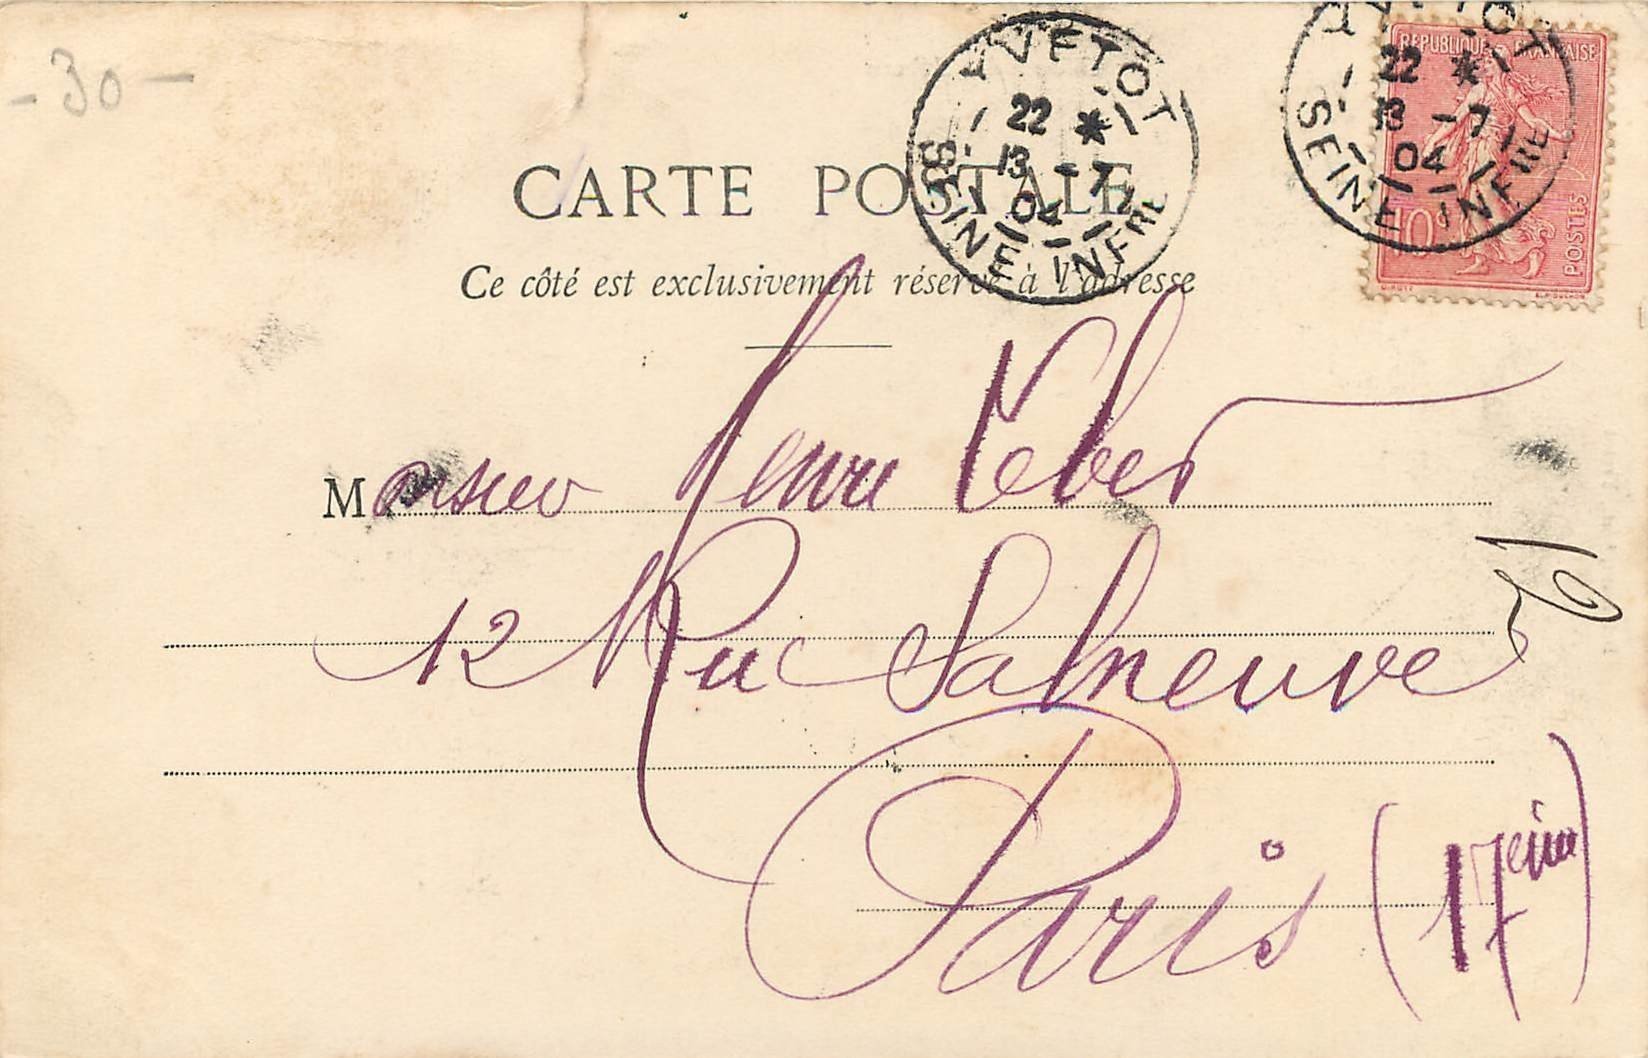 - 30 -
YVETOT
22 *
13 -7
04
SEINE INFRE
YVETOT
22 *
13 -7
04
SEINE INFRE
REPUBLIQUE FRANÇAISE
10c
POSTES
CARTE POSTALE
Ce côté est exclusivement réservé à l'adresse
Monsieur Henri Veber
12 Rue Salneuve
Paris (17eme)